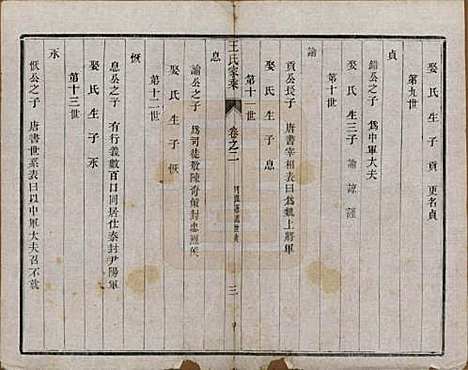 娶氏生子貢 更名貞
第九世
貞
錯公之子 為中軍大夫
娶氏生三子 諭 諒 謹
第十世
諭
貢公長子 唐書宰相表曰為魏上將軍
娶氏生子息
第十一世
王氏家乘
卷之二
三
息
諭公之子 為司徒
封忠
娶氏生子恢
第十二世
恢
息公之子 有行義數百口同居仕秦封尹陽軍
娶氏生子汞
第十三世
汞
恢公之子 唐書世系表曰以中軍大夫召不就